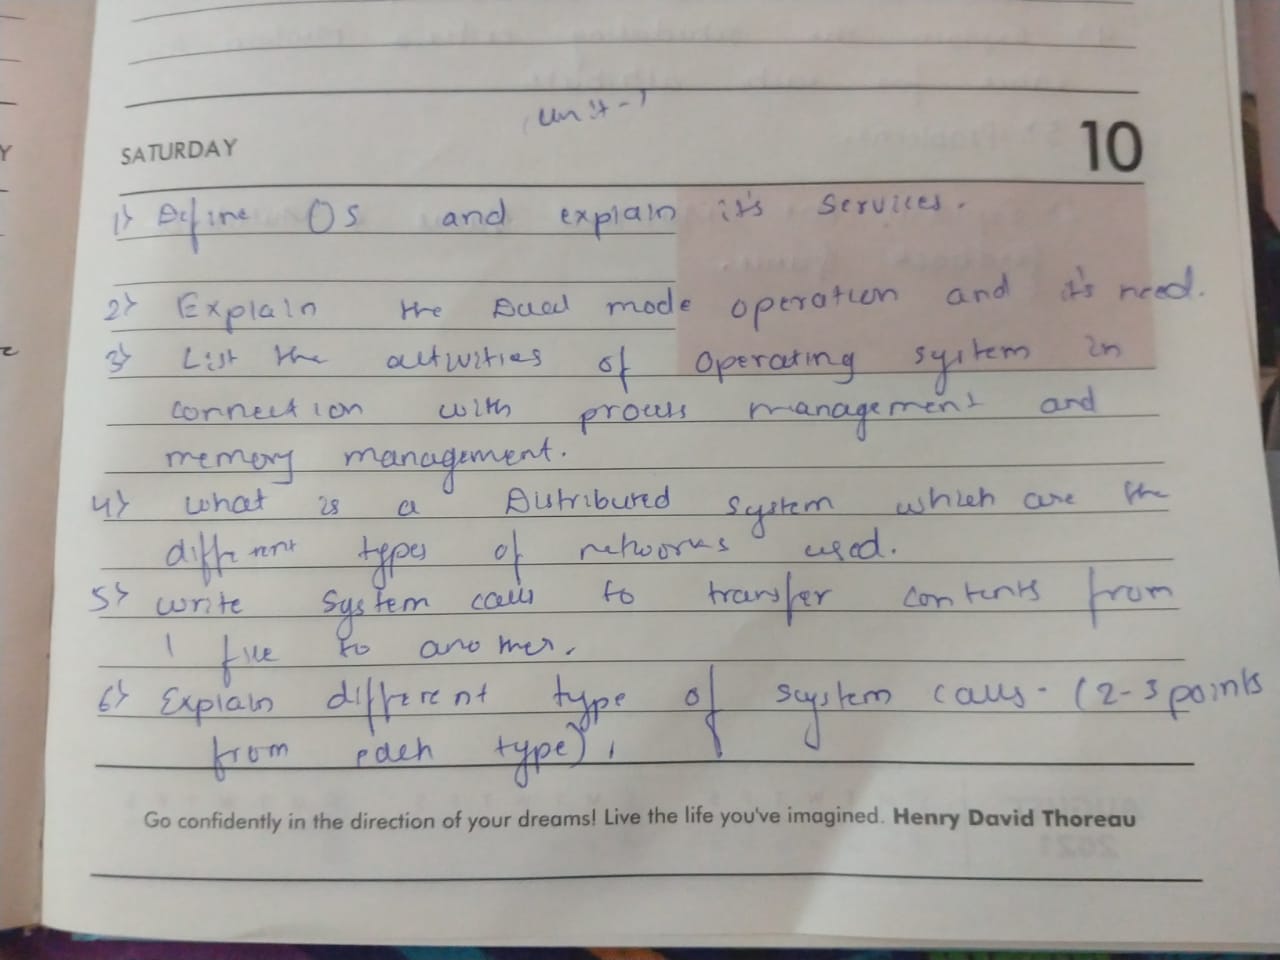 Unit-1
SATURDAY 10
1) Define OS and explain it's services.
2) Explain the Dual mode operation and it's need.
3) List the activities of operating system in
connection with process management and
memory management.
4) what is a Distributed system which are the
different types of networks used.
5) write system calls to transfer contents from
1 file to another.
6) Explain different type of system calls - (2-3 points
from each type).
Go confidently in the direction of your dreams! Live the life you've imagined. Henry David Thoreau